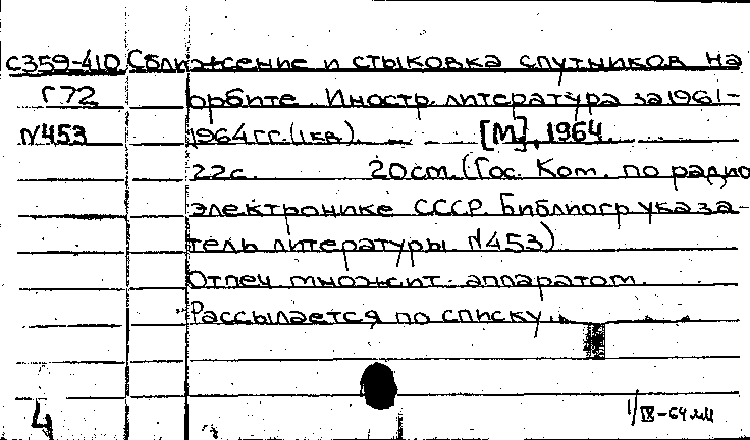 С359-410 Сближение и стыковка спутников на
Г72 орбите. Иностр. литература за 1961-
N453 1964 гг. (I кв). [М], 1964.
22с. 20 см. (Гос. Ком. по радио
электронике СССР. Библиогр указа-
тель литературы N453)
Отпеч множит. аппаратом.
Рассылается по списку.
4 1/IX-64 мм